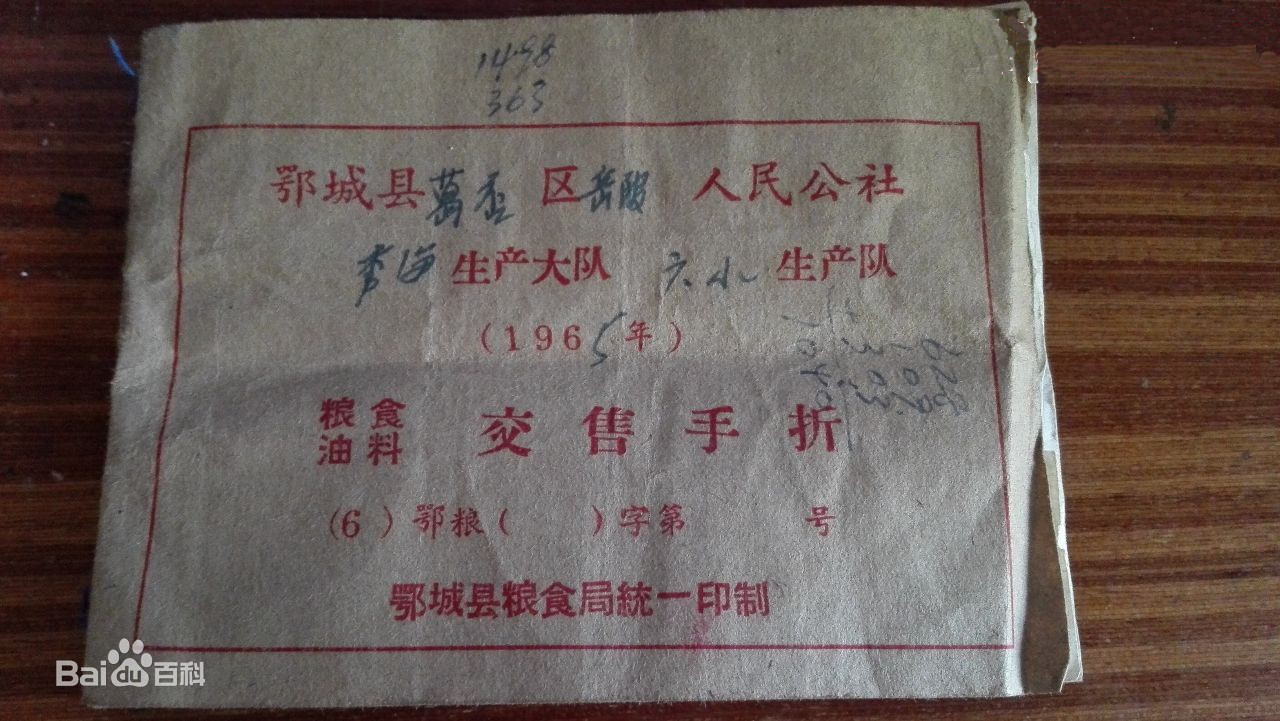 1498
363
鄂城县葛店区岳陂人民公社
李海生产大队 六小生产队
(1965年)
粮食
油料 交售手折
(6)鄂粮( )字第 号
鄂城县粮食局統一印制
Bai du 百科